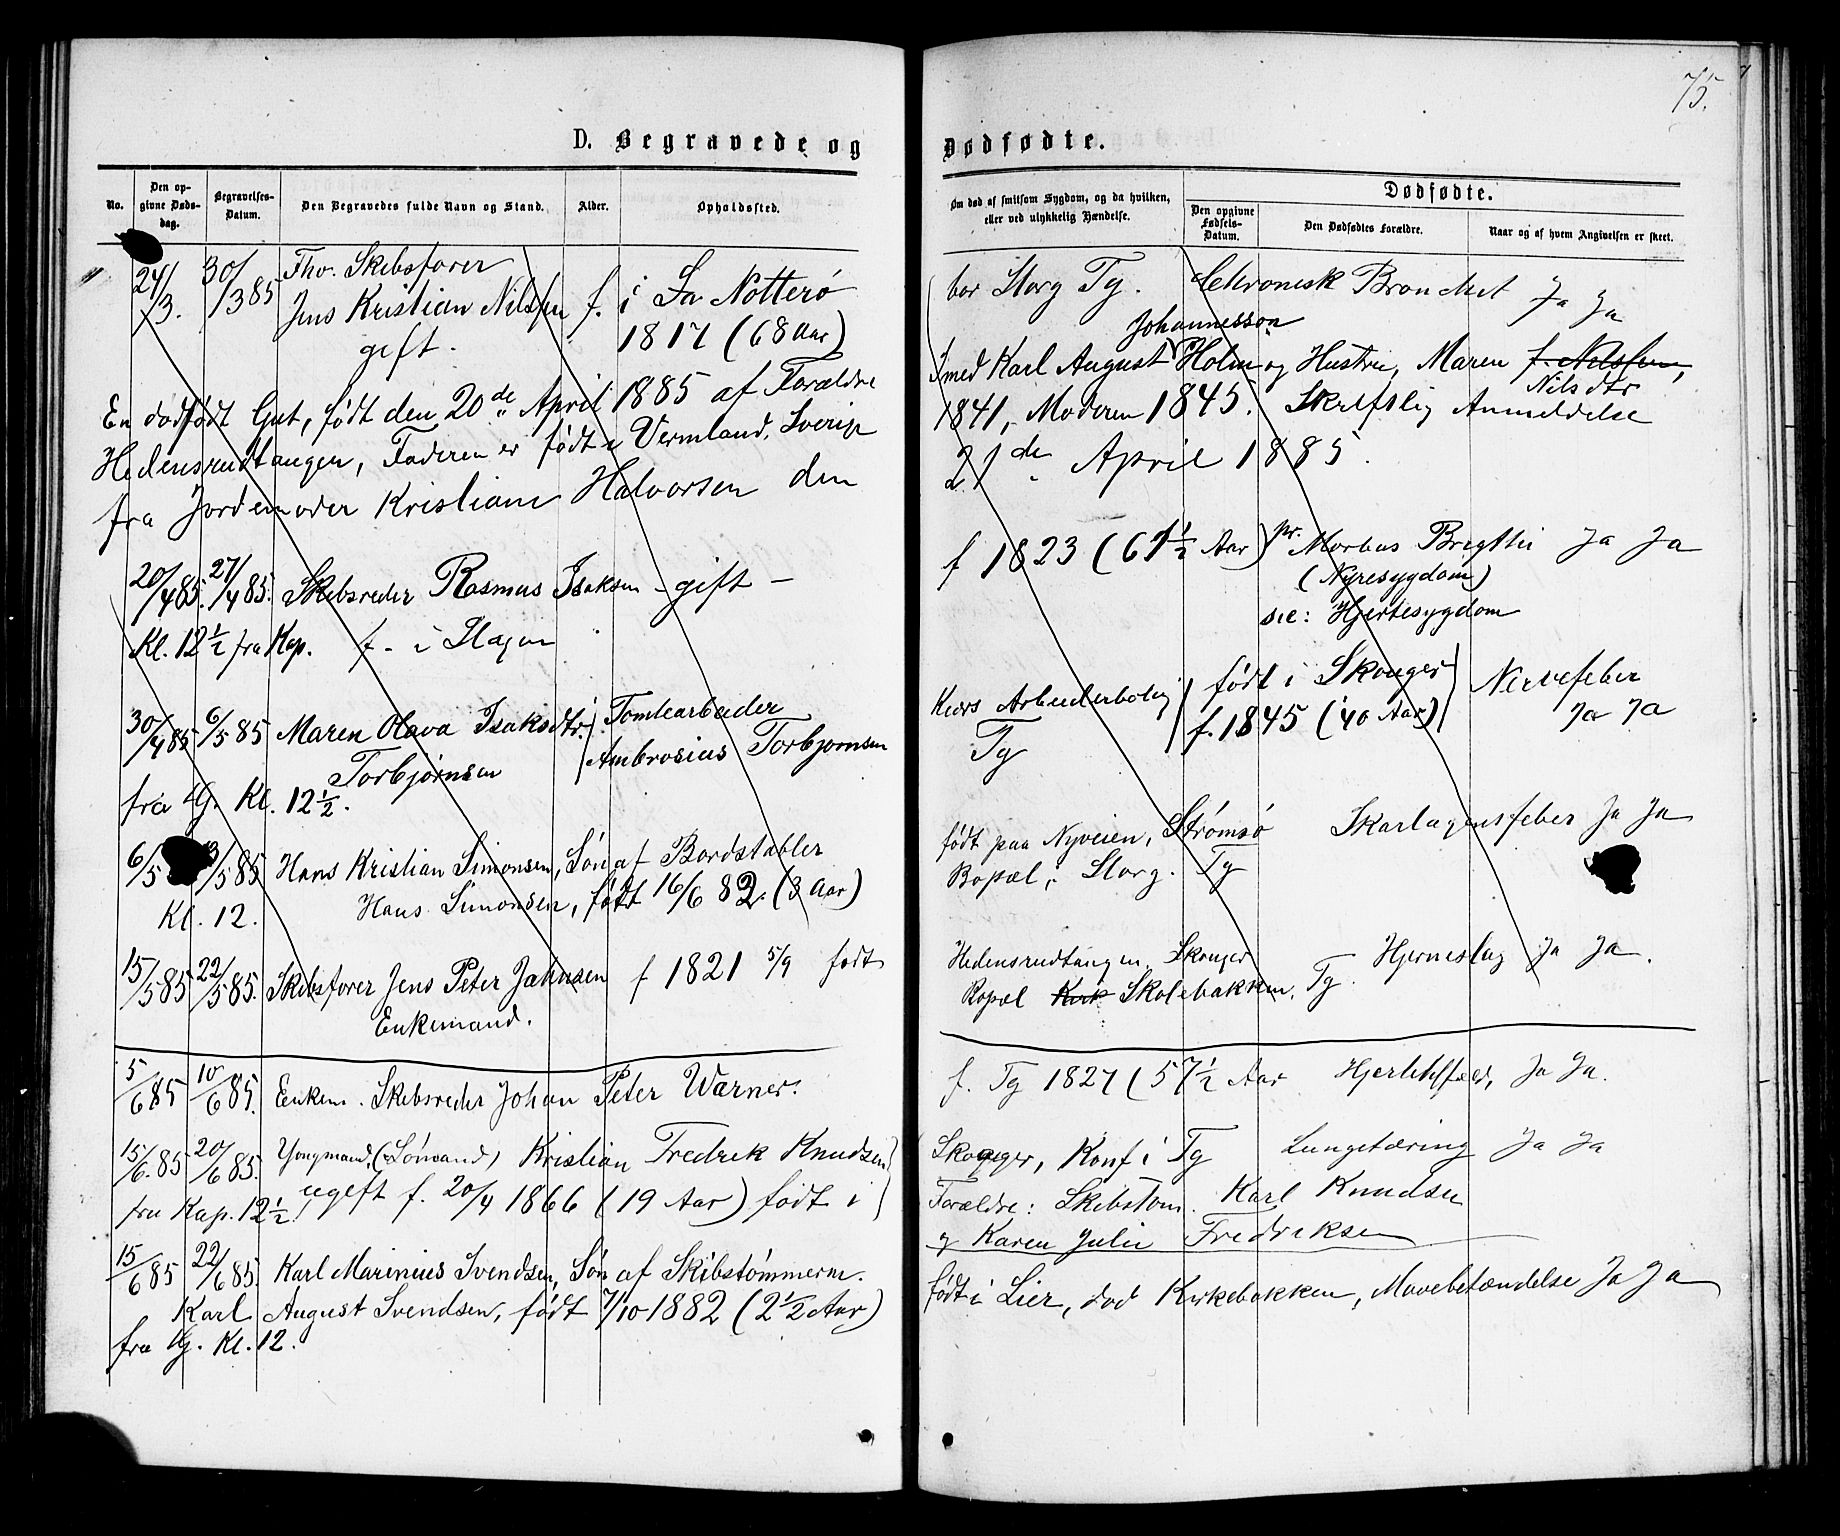 75.
D. Begravede og
Dødfødte.
No.
Den opgivne Døds-dag.
Begravelses-Datum.
Den Begravedes fulde Navn og Stand.
Alder.
Opholdssted.
Om død af smitsom Sygdom, og da hvilken, eller ved ulykkelig Hændelse.
Dødfødte.
Den opgivne Fødsels-Datum.
Den Dødfødtes Forældre.
Naar og af hvem Angivelsen er skeet.
24/3. 30/3 85 Fhv. Skibsfører
Jens Kristian Nilssen f. i Sa Nötterö
gift. 1817 (68 Aar)
bor Storg Tg. Chronisk Bronchit Ja Ja
En dødfødt Gut, født den 20de April 1885 af Forældre
Hedensrudtangen, Faderen er født i Vermland, Sverige
fra Jordemoder Kristiane Halvorsen den
Johannesson
med Karl August Holm og Hustru, Maren f. Nilssen,
Nilsdtr
1841, Moderen 1845. Skriftslig Anmeldelse
21de April 1885.
20/4 85. 27/4 85. Skibsreder Rasmus Isaksen - gift -
Kl. 12 1/2 fra Kap. f. i Slagen
f 1823 (61 1/2 Aar) pr. Morbus Brigthii Ja Ja
(Nyresygdom)
sec: Hjertesygdom
30/4 85 6/5 85 Maren Olava Isaksdtr. Tomtearbeider
Torbjørnsen Ambrosius Torbjørnsen
fra G. Kl. 12 1/2.
Kiærs Arbeiderbolig født i Skouger Nervefeber
Tg f. 1845 (40 Aar) Ja Ja
6/5 13/5 85 Hans Kristian Simonsen, Søn af Bordstabler
Kl. 12. Hans Simonsen, født 16/6 82. (3 Aar)
født paa Nyveien, Strømsø Skarlagensfeber Ja Ja
Bopæl i Storg. Tg
15/5 85 22/5 85. Skibsfører Jens Peter Jahnsen f 1821 5/9 født
Enkemand.
Hedensrudtangen, Skouger Hjerneslag Ja Ja.
Bopæl Kirk Skolebakken, Tg.
5/6 85 10/6 85. Enkem. Skibsreder Johan Peter Warner.
f. Tg 1827 (57 1/2 Aar Ja Ja.
15/6. 85 20/6 85. Yngmand, (Sømand) Kristian Fredrik Knudsen
fra Kap. 12 1/2 ugift f. 20/4 1866 (19 Aar) født i
Skouger, Konf i Tg Lungetæring Ja Ja
Forældre: Skibstom. Karl Knudsen
og Karen Julie Fredriksen
15/6 85 22/6 85. Karl Marinius Svendsen, Søn af Skibstömmerm.
Karl August Svendsen, født 7/10 1882 (2 1/2 Aar)
fra G. Kl. 12.
født i Lier, død Kirkebakken, Mavebetændelse Ja Ja